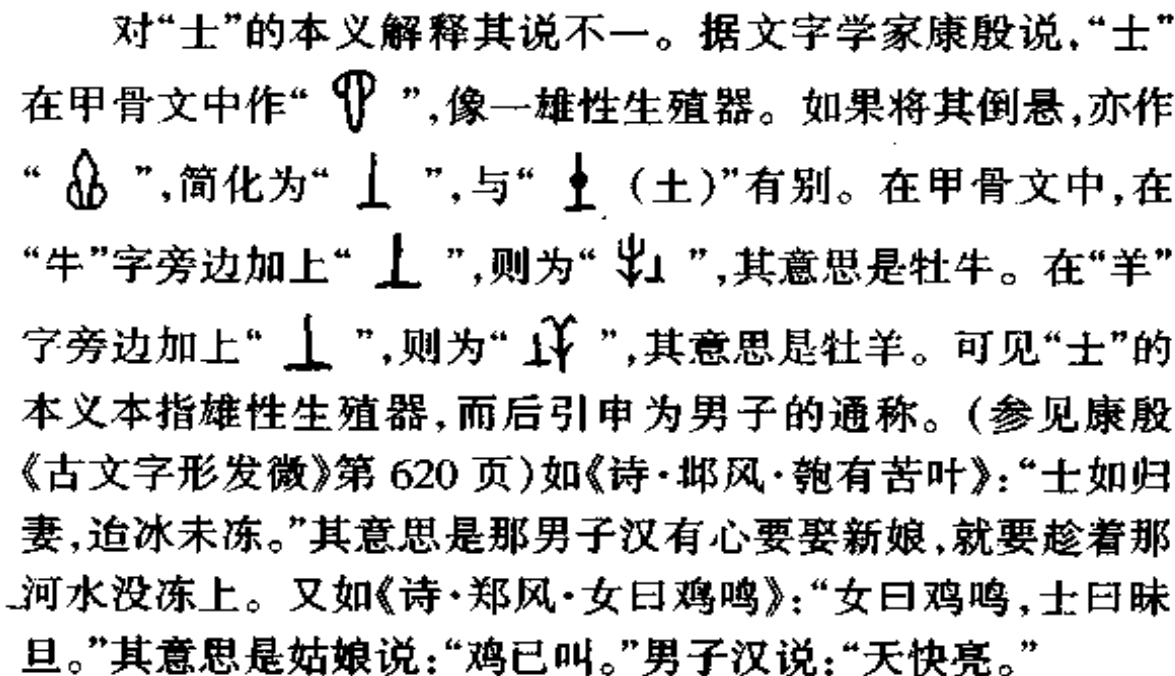 对“士”的本义解释其说不一。据文字学家康殷说,“士”
在甲骨文中作“ ”,像一雄性生殖器。如果将其倒悬,亦作
“ ”,简化为“⊥”,与“ (土)”有别。在甲骨文中,在
“牛”字旁边加上“⊥”,则为“ ”,其意思是牡牛。在“羊”
字旁边加上“⊥”,则为“ ”,其意思是牡羊。可见“士”的
本义本指雄性生殖器,而后引申为男子的通称。(参见康殷
《古文字形发微》第 620 页)如《诗·邶风·匏有苦叶》:“士如归
妻,迨冰未冻。”其意思是那男子汉有心要娶新娘,就要趁着那
河水没冻上。又如《诗·郑风·女曰鸡鸣》:“女曰鸡鸣,士曰昧
旦。”其意思是姑娘说:“鸡已叫。”男子汉说:“天快亮。”